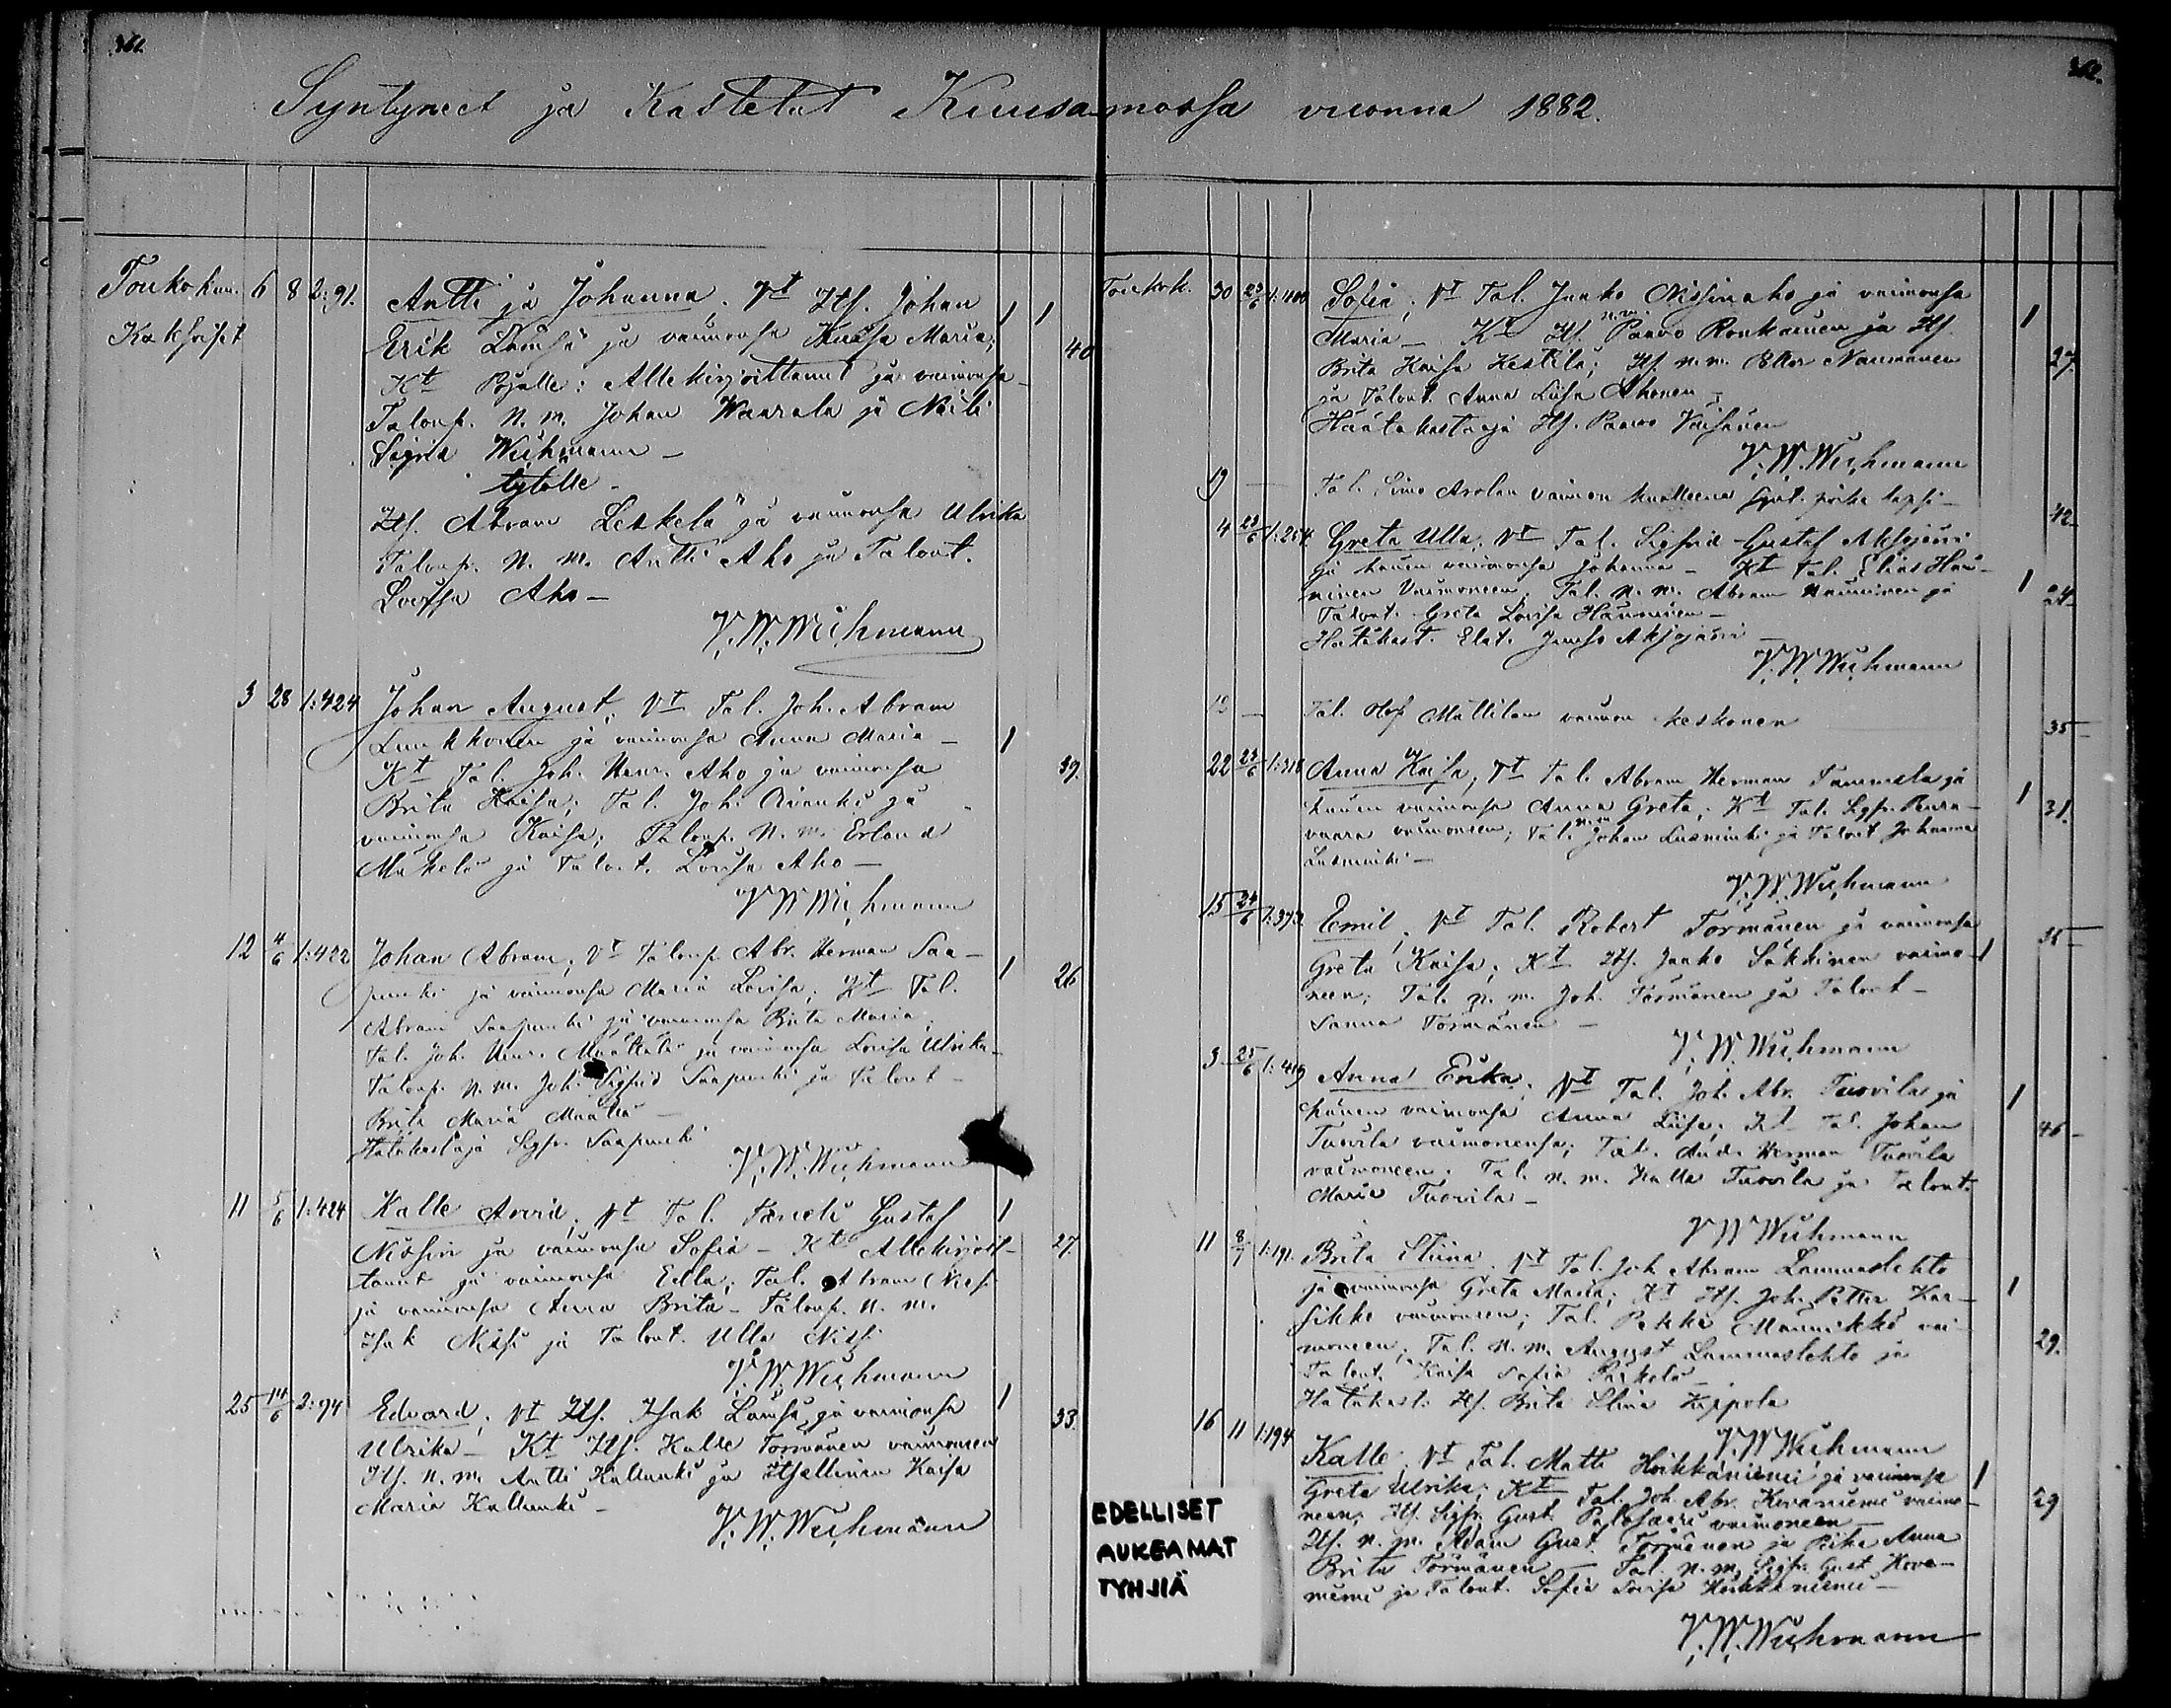 361.
362.
Syntyneet ja Kastetut Kuusamossa vuonna 1882.
Toukokuu. 6 8 2:91. Antti ja Johanna; Vt Itsl. Johan
Kaksoiset Erik Lämsä ja vaimonsa Kaisa Maria; 1 1
Kt Pojalle: Allekirjoittanut ja vaimonsa 40
Talonp. n. m. Johan Waarala ja Naili
Sigrid Wichmann –
tytölle –
Itsl. Abram Leskelä ja vaimonsa Ulrika
Talonp. n. m. Antti Aho ja Talont.
Lovisa Aho –
V. W. Wichmann
3 28 1:424 Johan August; Vt Tal. Joh. Abram
Luukkonen ja vaimonsa Anna Maria – 1
Kt Tal. Joh. Henr. Aho ja vaimonsa 39.
Brita Kaisa; Tal. Joh. Oivanki ja
vaimonsa Kaisa; Talonp. n. m. Erland
Mäkelä ja Talont. Lovisa Aho –
V W Wichmann
12 4/6 1:422 Johan Abram; Vt Talonp Abr. Herman Saa–
punki ja vaimonsa Maria Lovisa; Kt Tal. 1 26
Abram Saapunki ja vaimonsa Brita Maria;
Tal. Joh. Henr. Määttälä ja vaimonsa Lovisa Ulrika–
Talonp. n. m. Joh. Sigfrid Saapunki ja Talont –
Brita Maria Määttä –
Hätäkastaja Sigfr. Saapunki
V. W. Wichmann
11 5/6 1:424 Kalle Arvid; Vt Tal. Taneli Gustaf 1
Nissin ja vaimonsa Sofia – Kt Allekirjoit– 27.
tanut ja vaimonsa Edla; Tal. Abram Nissi
ja vaimonsa Anna Brita – Talonp. n. m.
Isak Nissi ja Talont. Ulla Nissi
V. W. Wichmann
25 14/6 2:94 Edvard; Vt Itsl. Isak Lämsä ja vaimonsa 1
Ulrika – Kt Itsl. Kalle Törmänen vaimoneen 33.
Itsl. n. m. Antti Kallunki ja Itsellinen Kaisa
Maria Kallunki –
V. W. Wichmann
Toukok. 30 23/6 1:400 Sofia; Vt Tal. Jaako Nissinaho ja vaimonsa
Maria – Kt Itsl. n. m. Paavo Ronkainen ja Itsl. 1
Brita Kaisa Kestilä; Itsl. n. m. Petter Naumanen 27.
ja Talont. Anna Liisa Ahonen –
Häätäkastaja Itsl. Paavo Väisänen
V. W. Wichmann
19 – Tal. Simo Arolan vaimon kuolleena synt. poika lapsi – 42–
4 23/6 1:254 Greta Ulla; Vt Tal. Sigfrid Gustaf Aksjärvi
ja hänen vaimonsa Johanna – Kt Tal. Elias Hän–
ninen Vaimoneen; Tal. n. m. Abram Hänninen ja 1 24–
Talont. Greta Lovisa Hänninen –
Hätäkast. Elat. Juuso Aksjärvi –
V. W Wichmann
19 – Tal. Olof Mällilän vaimon keskonen 35–
22 23/6 1:318 Anna Kaisa; Vt Tal. Abram Herman Tammela ja
hänen vaimonsa Anna Greta; Kt Tal. Sigfr. Penra– 1 31.
vaara vaimoneen; Tal. n. m. Johan Lusminki ja Talont Johanna
Lusminki –
V. W. Wichmann
15 24/6 1:372 Emil; Vt Tal. Robert Törmänen ja vaimonsa 35–
Greta Kaisa; Kt Itsl. Jaako Säkkinen vaimo– 1
neen; Tal. n. m. Joh. Törmänen ja Talont –
Sanna Törmänen –
V. W. Wichmann
3 25/6 1:419 Anna Erika; Vt Tal. Joh. Abr. Tuovila ja 1
hänen vaimonsa Anna Liisa; Kt Tal. Johan 46–
Tuovila vaimonensa; Tal. And. Herman Tuovila
vaimoneen. Tal. n. m. Kalle Tuovila ja Talont.
Maria Tuovila –
V W Wichmann
11 8/7 1:191. Brita Stiina; Vt Tal. Joh Abram Lammaslehto
ja vaimonsa Greta Maria; Kt Itsl. Joh. Petter Kar– 1
sikko vaimoneen; Tal. Pekka Mannikkö vai–
moneen; Tal. n. m. August Lammaslehto ja 29.
Talont. Kaisa Sofia Pärkelä –
Hätäkast. Itsl. Brita Stina Kippola
V. W. Wichmann
16 11 1:194 Kalle; Vt Tal. Matti Heikkäniemi ja vaimonsa 1
Greta Ulrika; Kt Tal. Joh. Abr. Kivaniemi vaimo– 29
neen; Itsl. Sigfr. Gust. Palosaari vaimoneen –
Itsl. n. m. Adam Gust. Törmänen ja Piika Anna
Brita Törmänen – Tal. n. m. Sigfr. Gust Kova–
niemi ja Talont. Sofia Lovisa Heikkäniemi –
V. W. Wichmann
EDELLISET
AUKEAMAT
TYHJIÄ